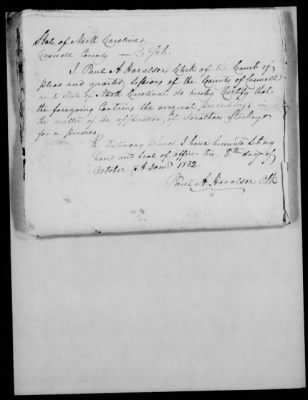 State of North Carolina,
Caswell County
I Paul A Haralson Clerk of the Court of
pleas and quarter Sessions of the County of Caswell
and State of North Carolina do hereby Certify that
the foregoing Contains the original proceedings in
the matter of the application of Jonathan
for a pension
In testimony whereof I have hereunto Set my
hand and Seal of office this 8th day of
October A Dom 1832
Paul A. Haralson Clk